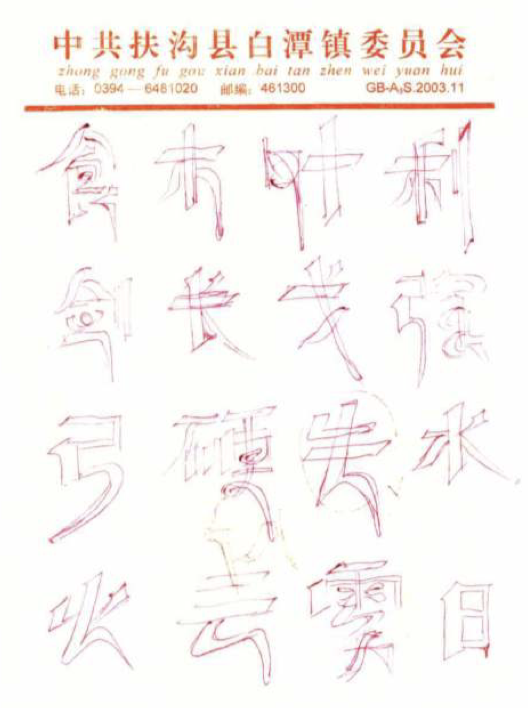 中共扶沟县白潭镇委员会
zhong gong fu gou xian bai tan zhen wei yuan hui
电话：0394—6481020 邮编：461300 GB-A₄S.2003.11
食 木 叶 利
剑 长 戈 强
弓 硬 失 水
火 云 日